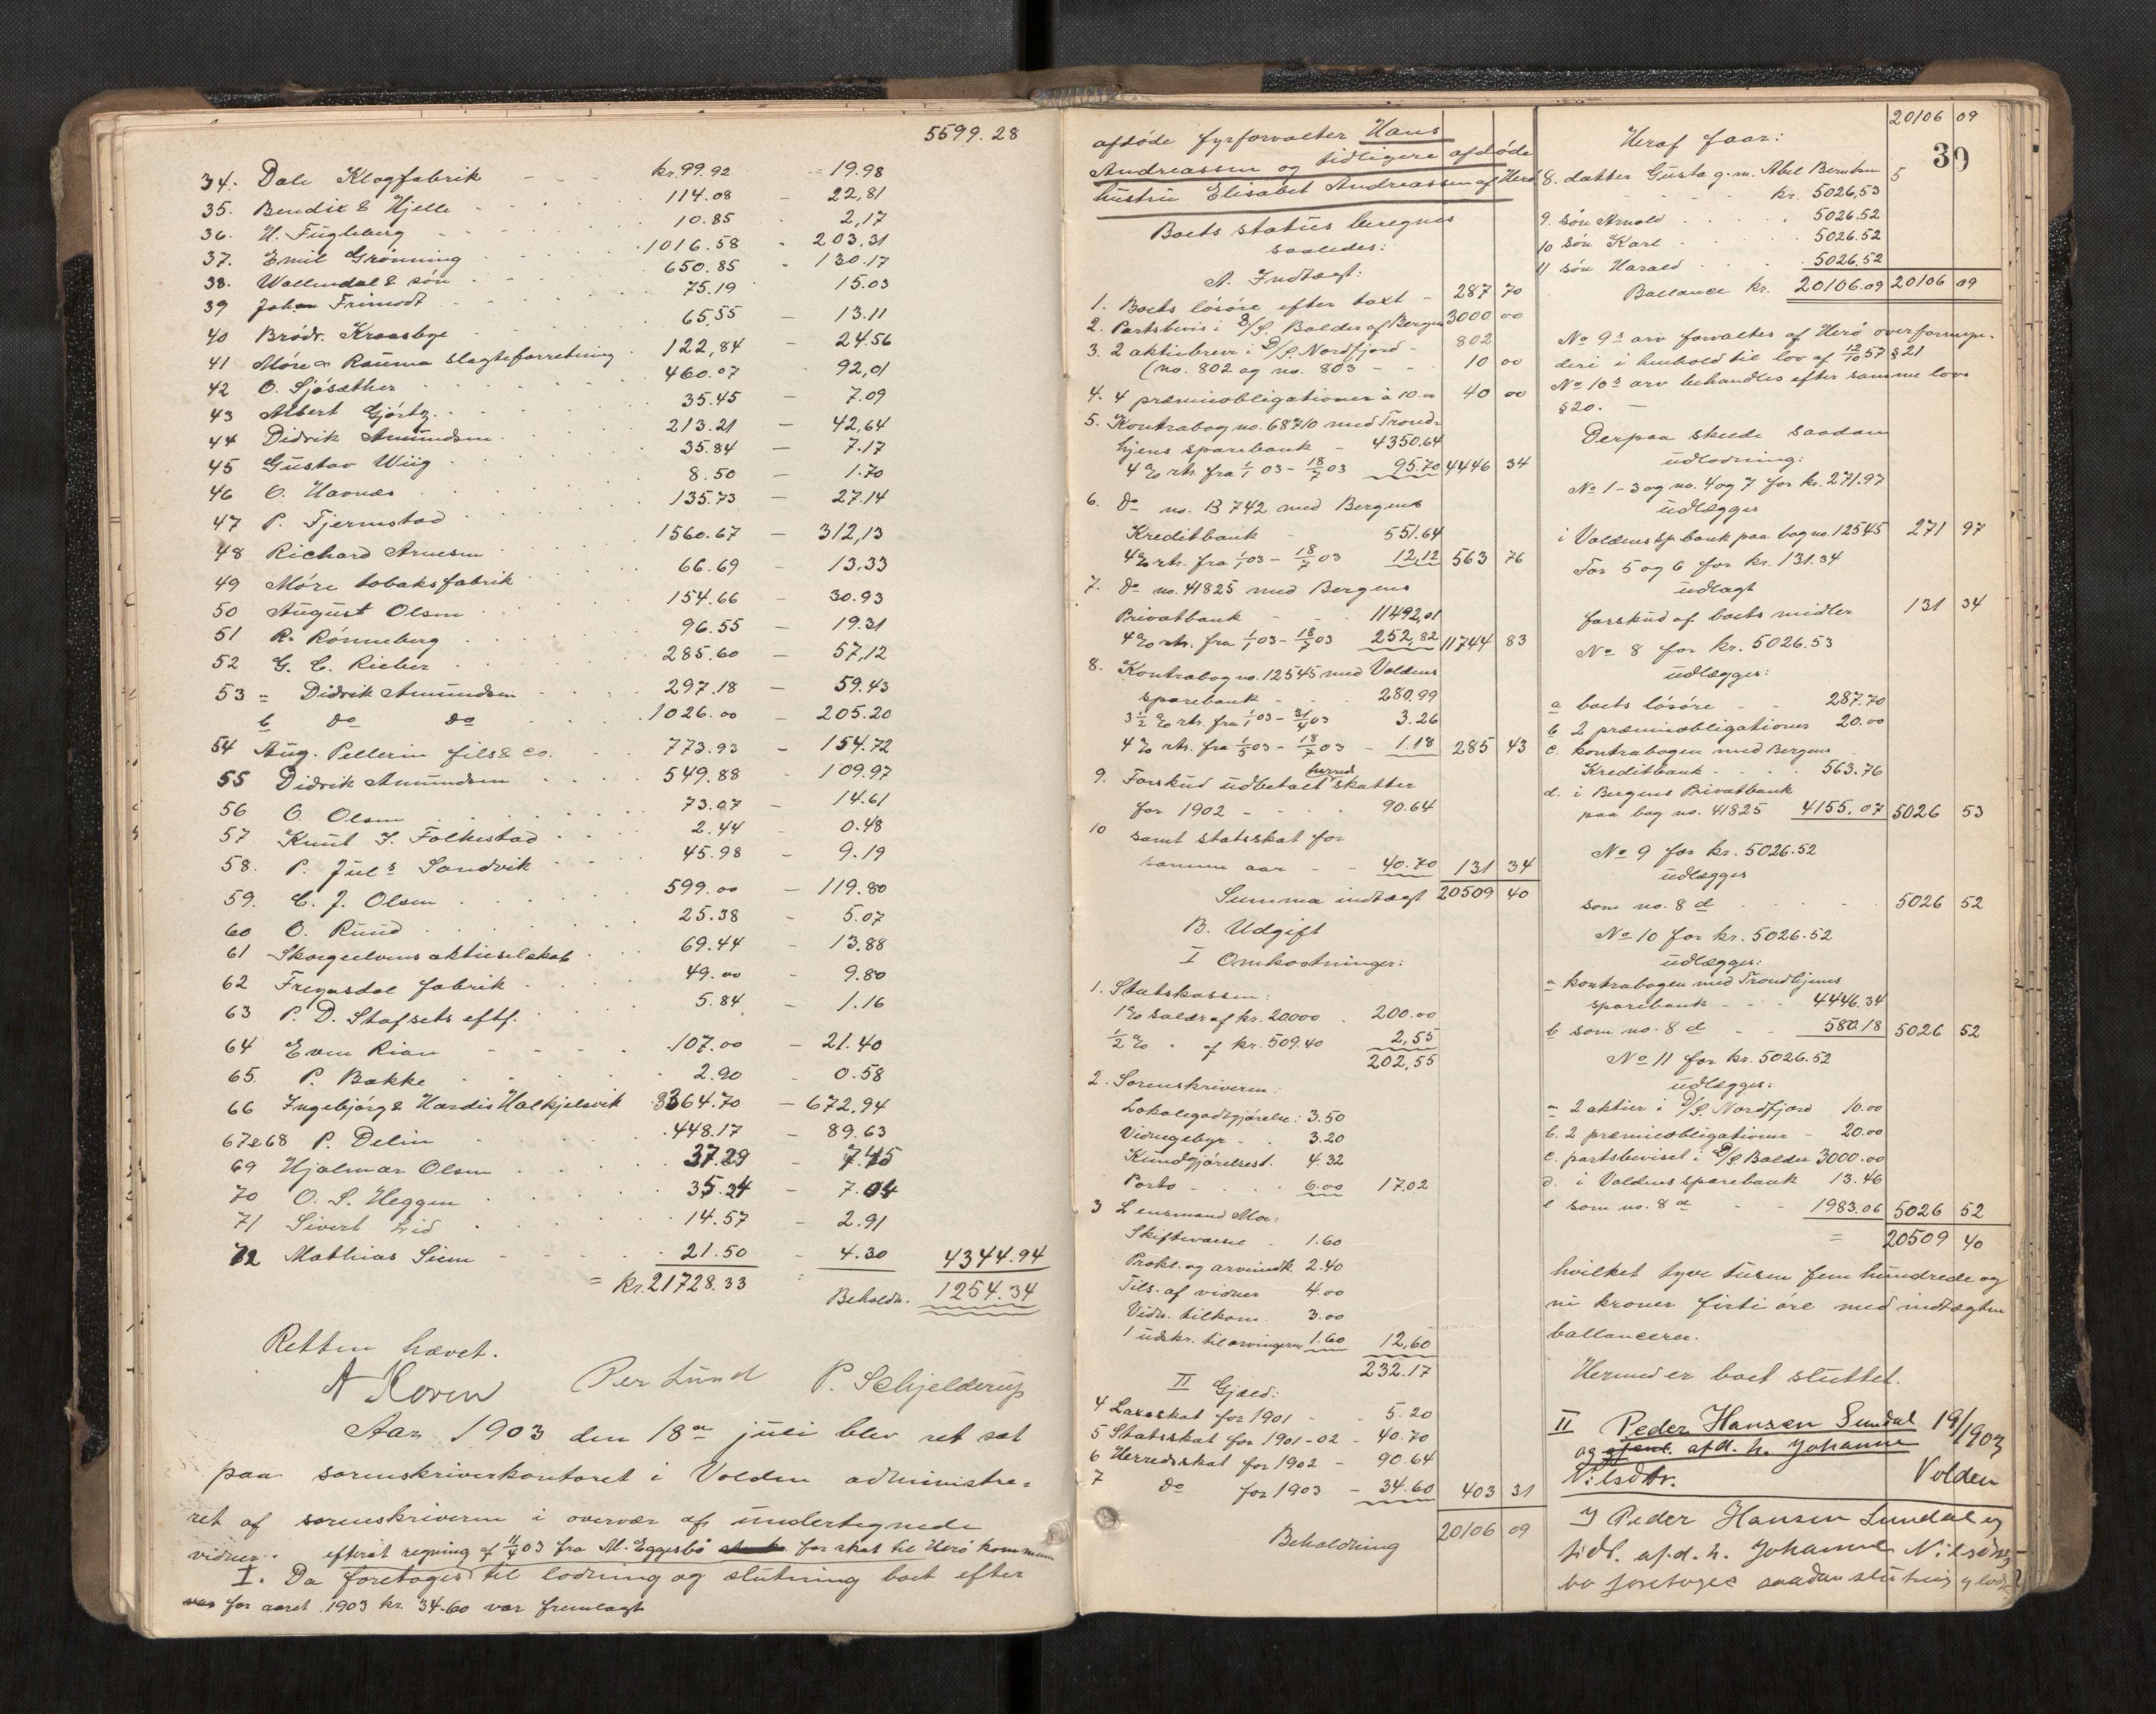 5599.28
34. Dale Klagfabrik - - - kr. 99.92 = 19.98
35. Bendix & Hjelle - 114.08 - 22,81
36. H. Fugleberg - 10.85 2,17
37. Emil Grønning 1016.58 - 203.31
38. Wallendal & søn 650.85 - 130.17
39 Johan Frimodt 75.19 15.03
40 Brødr. Kraasbye 65,55 - 13.11
41 Møre & Rauma slagteforretning 122,84 - 24.56
42 O. Sjøsæther 460.07 92,01
43 Albert Gjørtz 35.45 - 7.09
44 Didrik Amundsen 213.21 - 42,64
45 Gustav Wiig 35.84 - 7.17
46 O. Havnæs 8.50 - 1.70
47 P. Fjermstad 135.73 - 27.14
48 Richard Arnesen 1560.67 - 312,13
49 Møre tobaksfabrik 66.69 - 13.33
50 August Olsen 154.66 - 30.93
51 R. Rønneberg 96.55 - 19.31
52 G. C. Rieber 285.60 - 57,12
53 a Didrik Amundsen 297.18 - 59.43
b do do 1026.00 - 205.20
54 Aug. Pellerin fils & co. 773.93 - 154.72
55 Didrik Amundsen 549.88 - 109.97
56 O. Olsen 73.07 - 14.61
57 Knut J. Folkestad 2.44 0.48
58. P. Juls Sandvik 45.98 - 9.19
59. C. J. Olsen 599.00 - 119.80
60 O. Ruud 25.38 - 5.07
61 Skorgeelvens aktieselskab 69.44 - 13.88
62 Frenasdal fabrik 49.00 - 9.80
63 P. D. Stafsets eftf. 5.84 - 1.16
64 Even Rian 107.00 - 21.40
65. P. Bakke 2.90 - 0.58
66 Ingebjørg & Hardis Halkjelsvik 3364.70 - 672,94
67 & 68 P. Delin 448.17 - 89.63
69 Hjalmar Olsen 37.29 - 7.45
70 O. S. Heggen 35.24 - 7.04
71 Sivert Lid 14.57 - 2.91
72 Mathias Siem 21.50 - 4.30 4344.94
= kr. 21728.33 = Beholdn. 1254.34
Retten hævet.
A Koren Per Lund P. Schjelderup
Aar 1903 den 18de juli blev ret sat
paa sorenskriverkontoret i Volden administre-
ret af sorenskriveren i overvær af undertegnede
vidner. efterat regning af 11/4 03 fra M. Eggesbø for skat til Herø kommune
I. Da foretoges til lodning og slutning boet efter
for aaret 1903 kr. 34-60 var fremlagt
afdøde fyrforvalter Hans
Andreassen og tidligere afdøde
hustru Elisabet Andreassen af Herø
Boets status beregnes
saaledes:
A. Indtægt:
1. Boets løsøre efter taxt - 287 70
2. Partsbevis i D/S. Balder af Bergen 3000 00
3. 2 aktiebreve i D/S. Nordfjord - 802
(no. 802 og no. 803 - - 10 00
4. 4 præmieobligationer à 10.00 40 00
5. Kontrabog no. 68710 med Trond-
hjems sparebank - 4350.64
4 % rtr. fra 1/1 03 - 18/7 03 95.70 4446 34
6. do no. B 742 med Bergens
Kreditbank - 551.64
4 % rtr. fra 1/1 03 - 18/7 03 12,12 563 76
7. do no. 41825 med Bergens
Privatbank - - 11492,01
4 % rtr. fra 1/1 03 - 18/7 03 252,82 11744 83
8. Kontrabog no. 12545 med Voldens
sparebank - - 280,99
3 1/2 % rtr. fra 1/1 03 - 31/4 03 3.26
4 % rtr. fra 1/5 03 - 18/7 03 - 1.18 285 43
9. Forskud udbetalt herreds skatter
for 1902 - 90.64
10 samt statsskat for
samme aar - - 40.70 131 34
Summa indtægt 20509 40
B. Udgift
I Omkostninger:
1. Statskassen:
1 % saldr af kr. 20000 . 200.00
1/2 % " af kr. 509.40 2,55
202,55
2. Sorenskriveren:
Lokalegodtgjørelse: 3.50
Vidnegebyr - 3.20
Kundgjørelsest. 4.32
Porto - 6.00 17.02
3 Lensmand Moe:
Skiftevarsel - 1.60
Prokl. og arveindk. 2.40
Tils. af vidner 4.00
Vidn. tilkom. 3.00
1 udskr. til arvingerne 1.60 12,60
232.17
II Gjæld:
4 Laxeskat for 1901 - 5.20
5 Statsskat for 1901-02 - 40.70
6 Herredsskat for 1902 - 90.64
7 do for 1903 - 34.60 403 31
Beholdning 20106 09
20106 09
39
Heraf faar:
8. datter Gusta g. m. Abel Berntsen 5
kr. 5026,53
9. søn Arnold 5026.52
10 søn Karl 5026.52
11 søn Harald 5026.52
Ballance kr. 20106.09 20106 09
No 9s arv forvaltes af Herø overformyn-
deri i henhold til lov af 12/10 57 § 21
No 10s arv behandles efter samme lovs
§ 20. -
Derpaa skede saadan
udlodning:
No 1-3 og no. 4 og 7 for kr. 271.97
udlægges
i Voldens sp.bank paa bog no. 12545 271 97
For 5 og 6 for kr. 131.34
udlagt
forskud af boets midler 131 34
No 8 for kr. 5026.53
udlægges:
a boets løsøre - - 287.70
b 2 præmieobligationer 20.00
c. kontrabogen med Bergens
Kreditbank - 563.76
d. i Bergens Privatbank
paa bog no. 41825 4155.07 5026 53
No 9 for kr. 5026.52
udlægges
som no. 8 d 5026 52
No 10 for kr. 5026.52
udlægges:
a kontrabogen med Trondhjems
sparebank - - 4446.34
b som no. 8 d - - 580.18 5026 52
No 11 for kr. 5026.52
udlægges:
a 2 aktier i D/S. Nordfjord 10.00
b. 2 præmieobligationer - 20.00
c. partsbeviset i D/S Balder 3000.00
d. i Voldens sparebank 13.46
e som no. 8 d - 1983.06 5026 52
= 20509 40
hvilket tyve tusen fem hundrede og
ni kroner firti øre med indtægten
ballancerer.
Hermed er boet sluttet.
II Peder Hansen Sundal 19/1903
og afd. h. Johanne
Nilsdtr. Volden
I Peder Hansen Sundal og
tidl. afd. h. Johanne Nilsdtrs
bo foretoges saadan slutning og